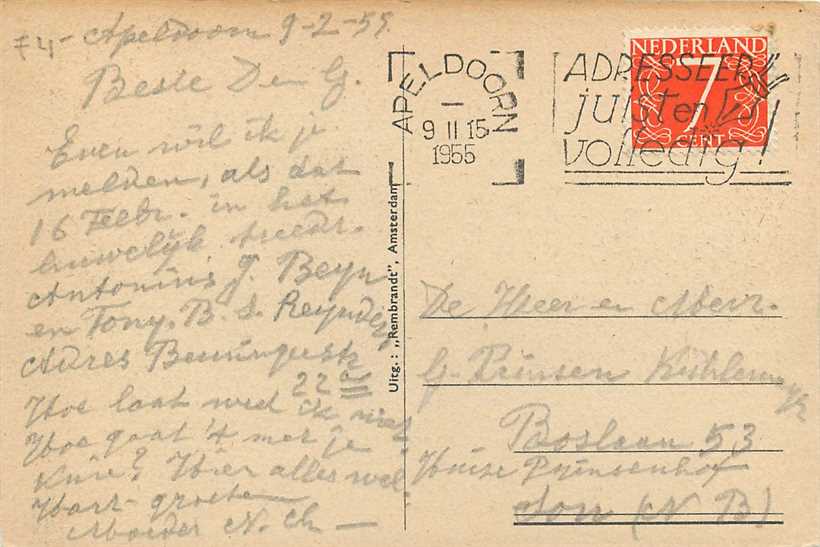 74- Apeldoorn 9-2-55.
Beste Den G.
Even wil ik je
melden, als dat
16 Febr. in het
huwelijk treedt.
Antonius J. Beyn
en Tony. B. S. Reynders
Adres
22 a III
Hoe laat weet ik niet
Hoe gaat 't met je
Knie? Hier alles wel
Hart- groeten
Moeder N. Ch—
Uitg.: „Rembrandt”, Amsterdam
APELDOORN
9 II 15
1955
ADRESSEER
juist en
volledig!
NEDERLAND
7
CENT
De Heer en Mevr.
G. Prinsen
Boslaan 53
Huize Prinsenhof
Son (N. B)